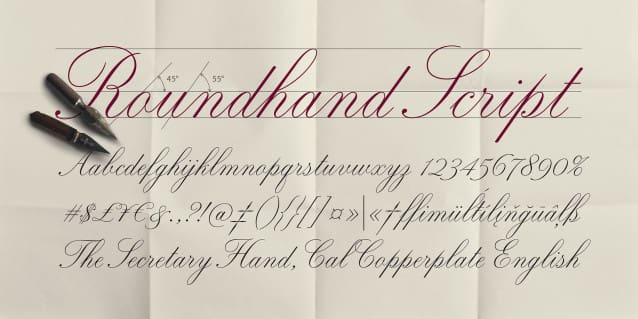 Roundhand Script
45° 55°
Aabcdefghijklmnopqrstuvwxyz 1234567890%
#$£¥€&.,?!@‡(){}[]¤»|«†ffimültíl
The Secretary Hand, Cal Copperplate English